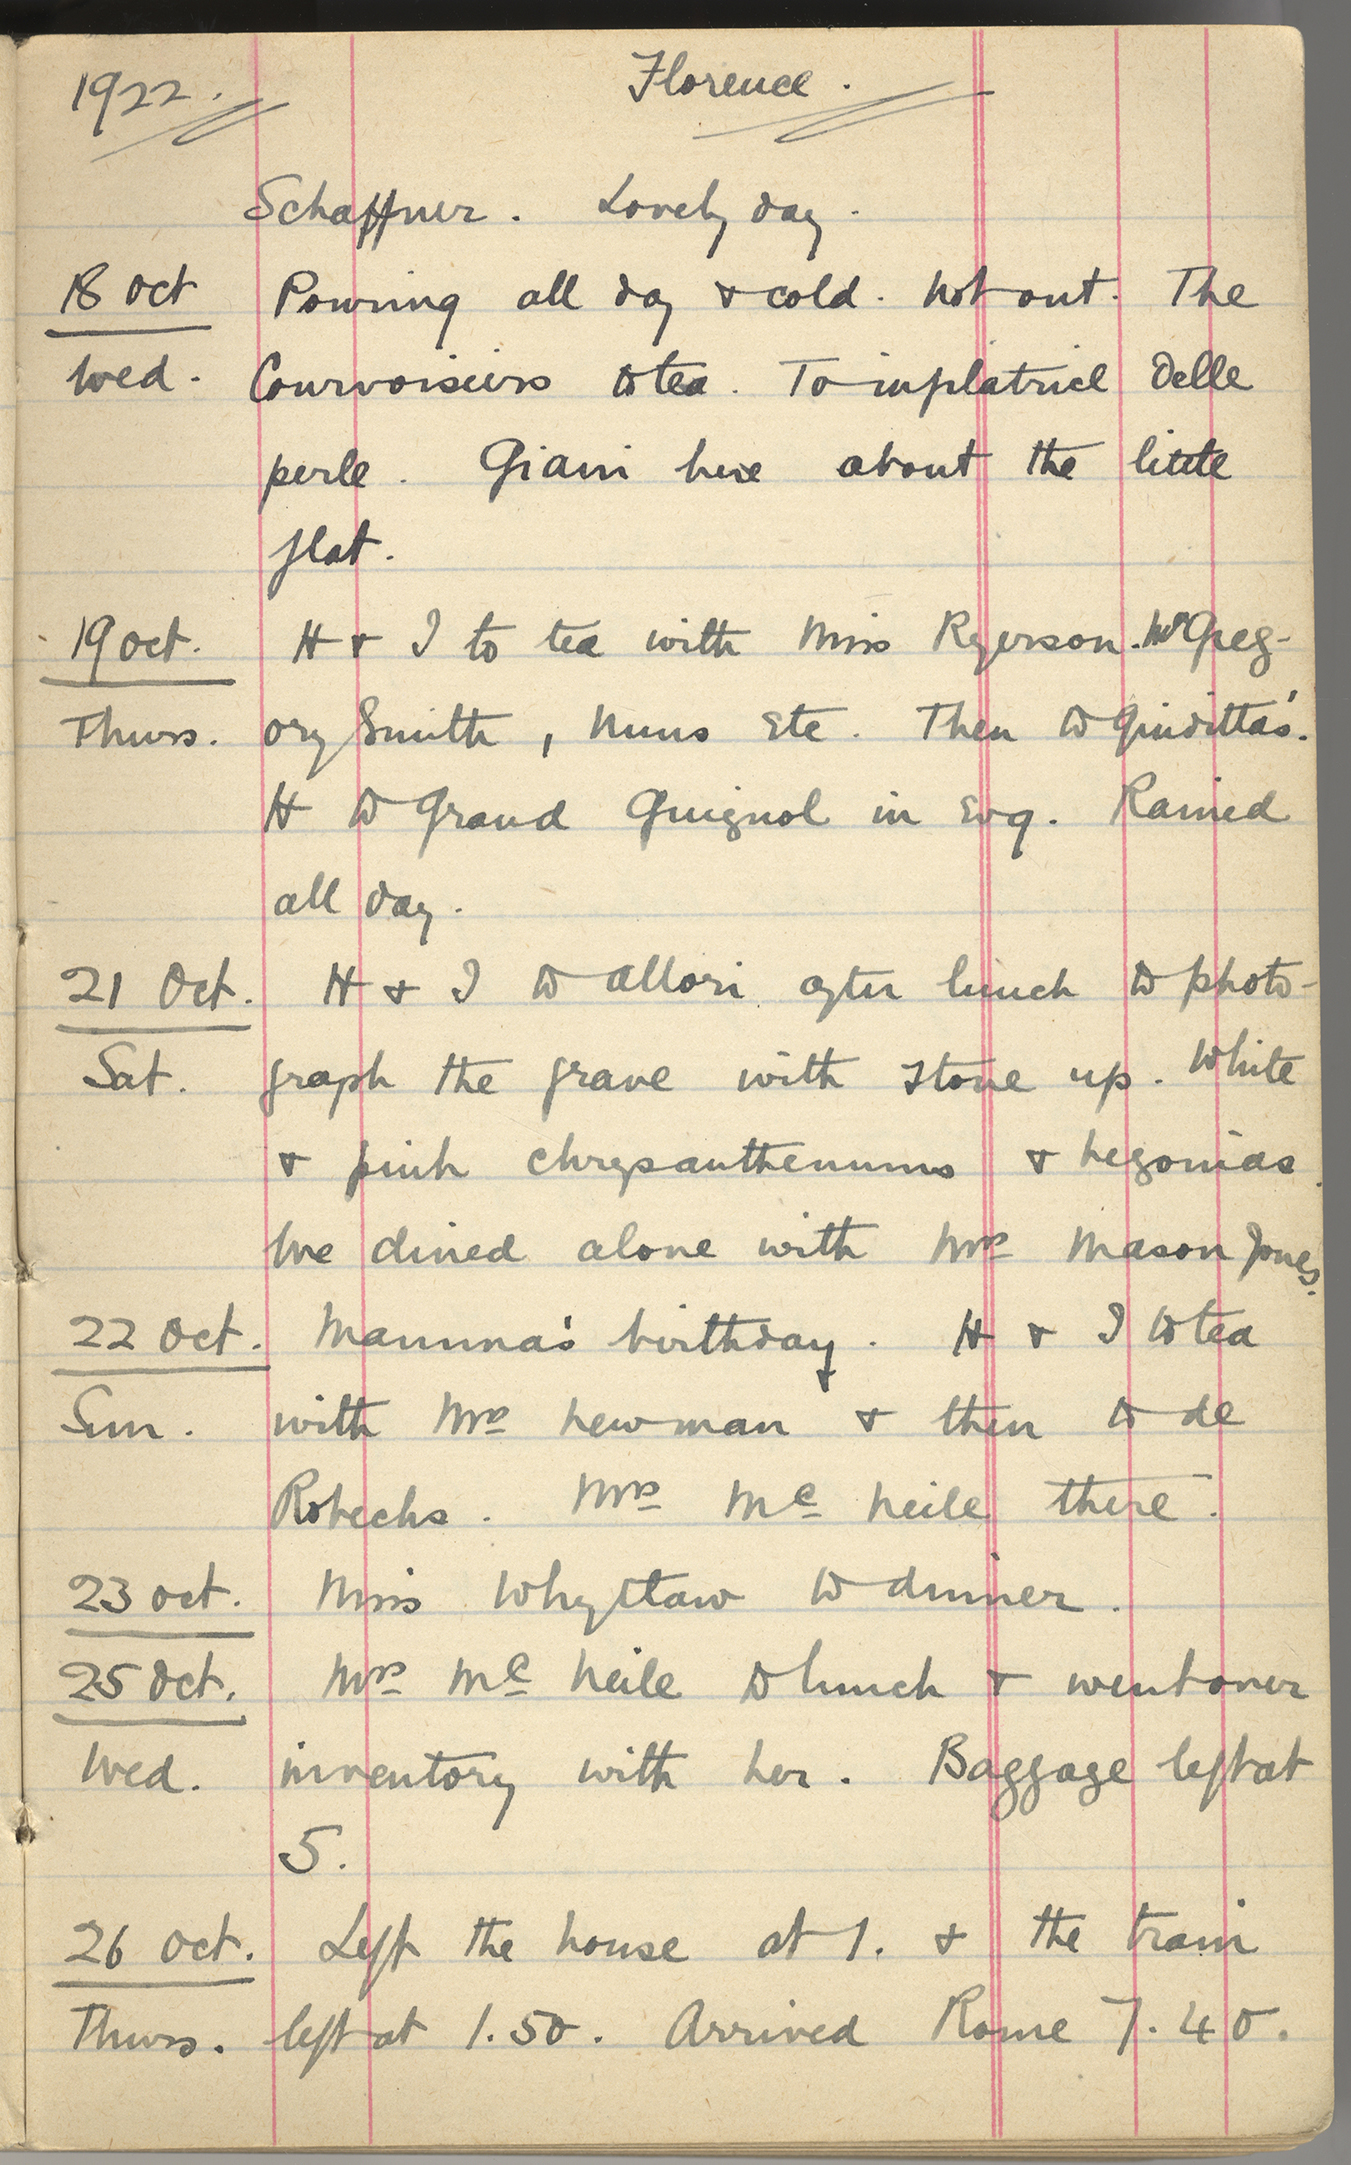 1922. Florence.
Schaffner. Lovely day.
18 Oct Pouring all day & cold. Not out. The
Wed. Courvoisiers to tea. To infilatrice delle
perle. Giani here about the little
flat.
19 Oct. H & I to tea with Miss Ryerson. Mr Greg-
Thurs. ory Smith, Nuns etc. Then to Giuditta's.
H to Grand Guignol in evg. Rained
all day.
21 Oct. H & I to Allori after lunch to photo-
Sat. graph the grave with stone up. White
& pink chrysanthemums & begonias.
We dined alone with Mrs Mason Jones.
22 Oct. Mamma's birthday. H & I to tea
Sun. with Mrs Newman & then to de
Robecks. Mrs Mc Neile there.
23 Oct. Miss Whyttaw to dinner.
25 Oct. Mrs Mc Neile to lunch & went over
Wed. inventory with her. Baggage left at
5.
26 Oct. Left the house at 1. & the train
Thurs. left at 1.50. Arrived Rome 7.40.